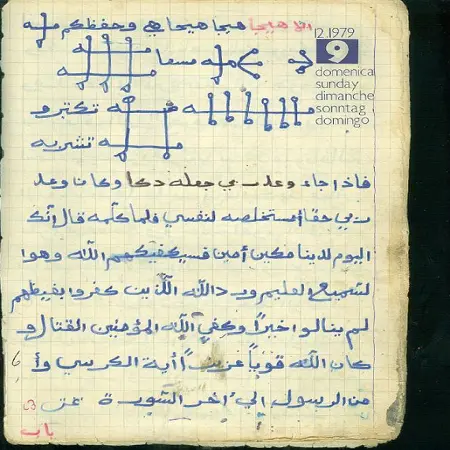 هيجا هيجا هيجا هي وحفظكم
12.1979
9
domenica
sunday
dimanche
sonntag
domingo
تكتبو
تشربه
فاذا جاء وعد ربي جعله دكا وكان وعد
ربي حقا أستخلصه لنفسي فلما كلمه قال انك
اليوم لدينا مكين أمين فسيكفيكهم الله وهوا
لسميع العليم ورد الله الذين كفروا بغيظهم
لم ينالوا خيراً وكفي الله المؤمنين القتال و
كان الله قوياً عزيزاً أية الكرسي وأ
من الرسول الي ءاخر السورة
باب